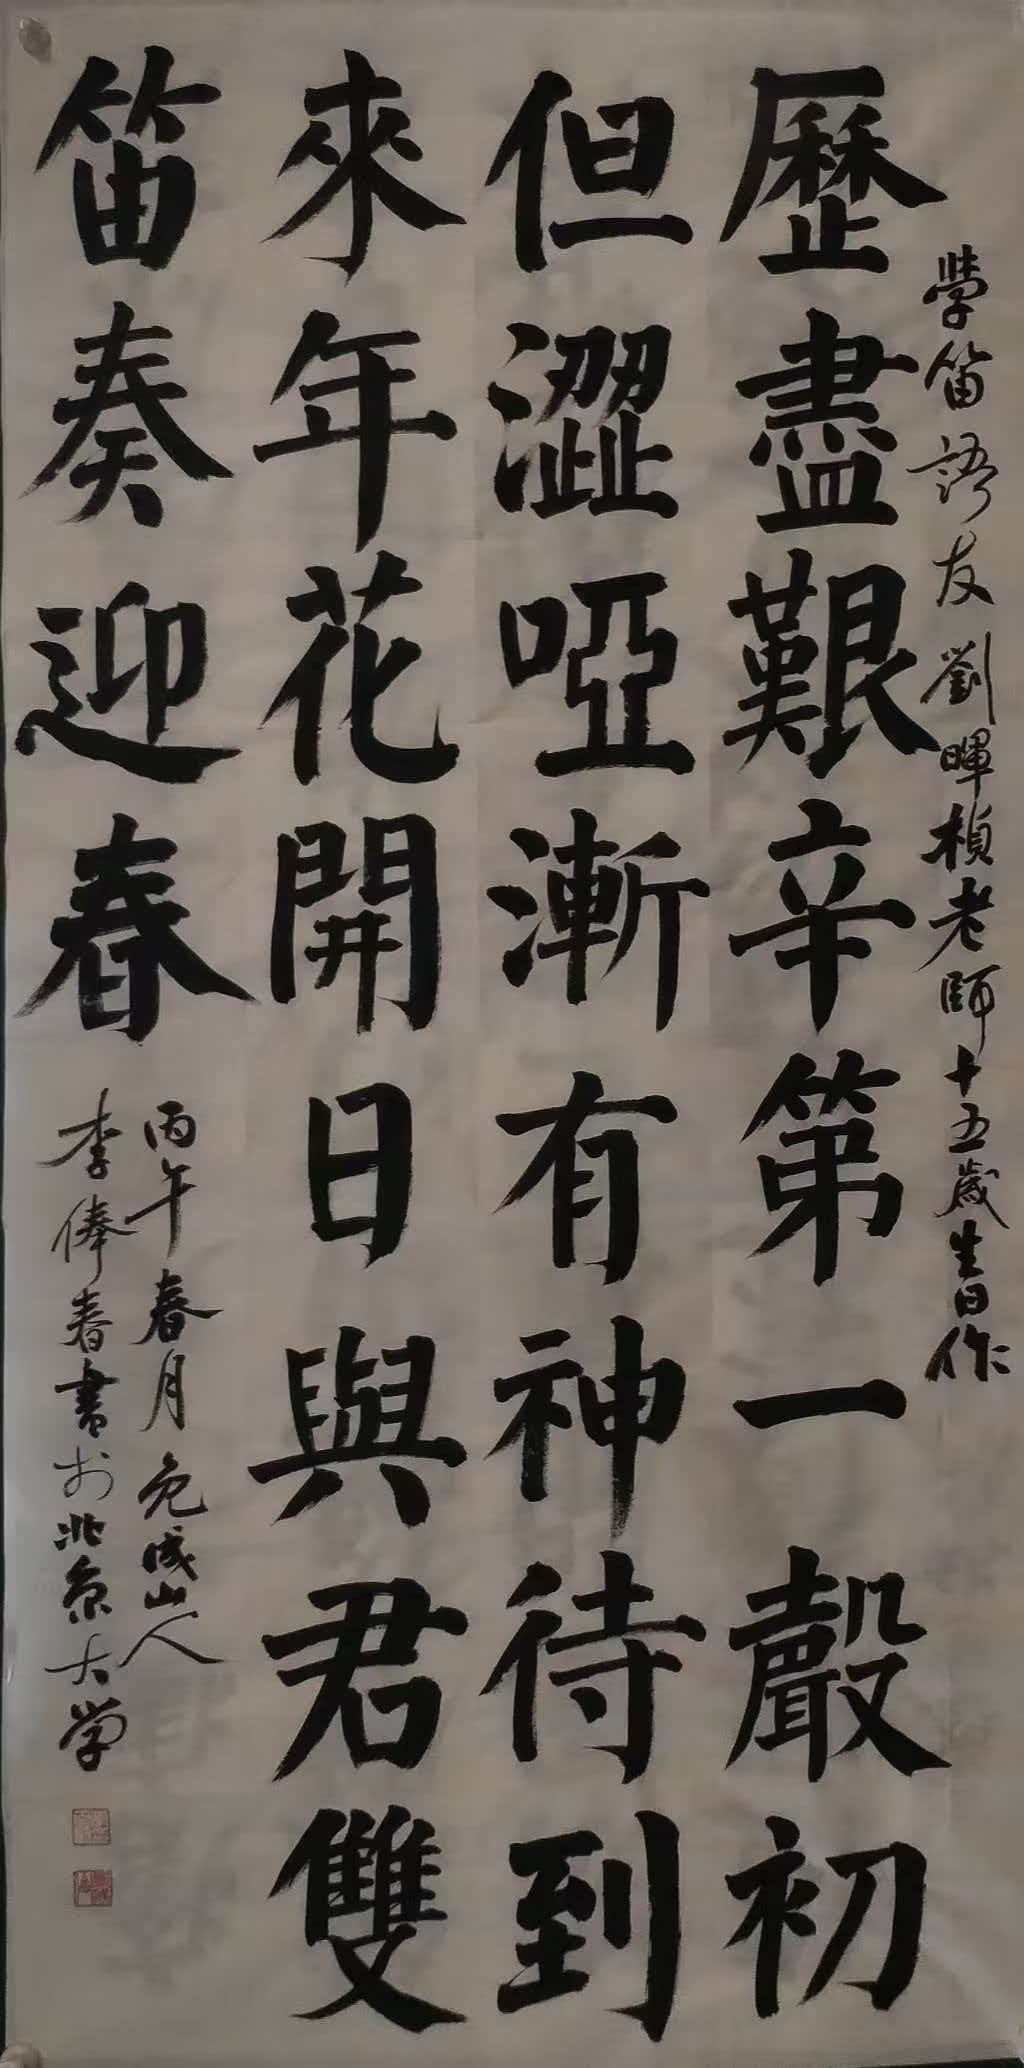 學笛語友劉暉楨老師十五歲生日作
歷盡艱辛第一聲初
但澀啞漸有神待到
來年花開日與君雙
笛奏迎春
丙午春月免成山人
李俸春書於北京大学